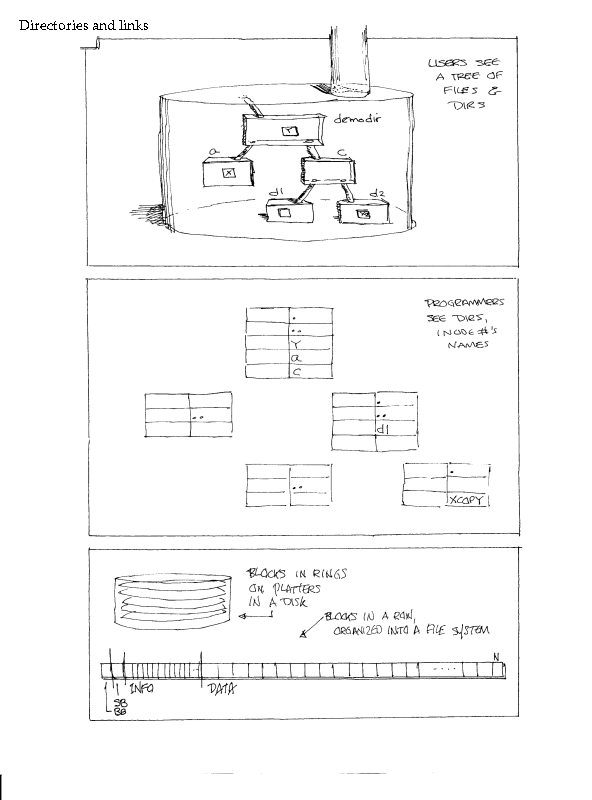 Directories and links
USERS SEE
A TREE OF
FILES &
DIRS
demodir
Y
a
C
X
d1
d2
PROGRAMMERS
SEE DIRS,
INODE #'S
NAMES
.
..
Y
a
C
..
.
..
d1
..
.
XCOPY
BLOCKS IN RINGS
ON PLATTERS
IN A DISK
BLOCKS IN A ROW,
ORGANIZED INTO A FILE SYSTEM
....
N
INFO
DATA
SB
BB